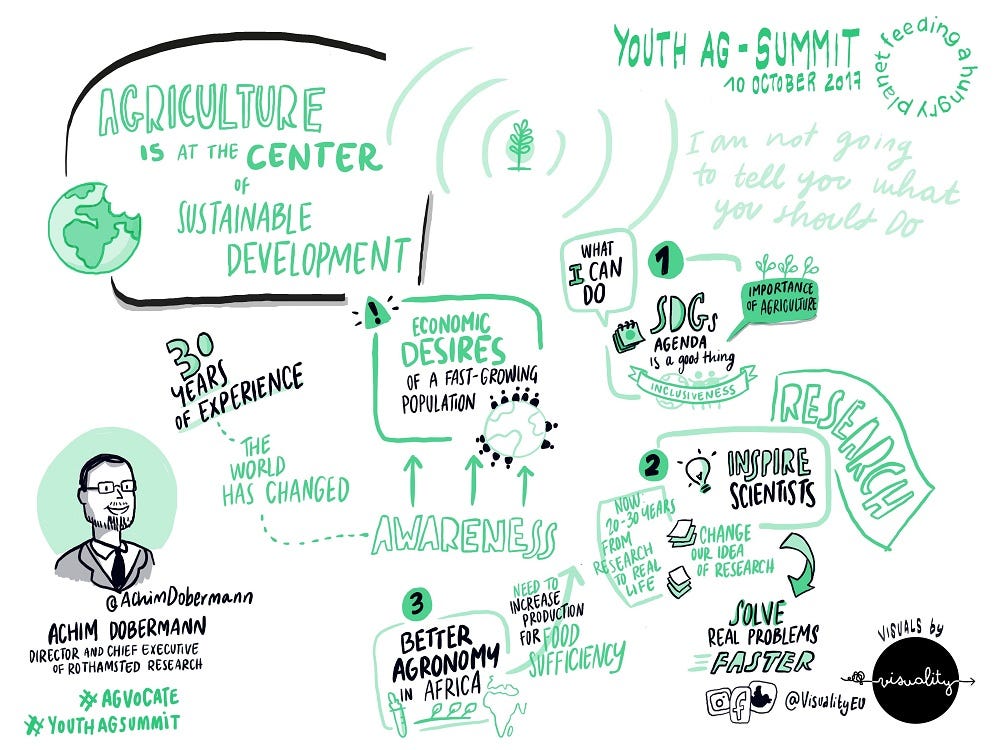 YOUTH AG-SUMMIT
10 OCTOBER 2017
feeding a hungry planet
AGRICULTURE
IS AT THE CENTER
OF
SUSTAINABLE
DEVELOPMENT
I am not going
to tell you what
you should do
WHAT
I CAN
DO
1
SDGs
AGENDA
is a good thing
INCLUSIVENESS
IMPORTANCE
OF AGRICULTURE
!
ECONOMIC
DESIRES
OF A FAST-GROWING
POPULATION
30
YEARS
OF EXPERIENCE
THE
WORLD
HAS CHANGED
AWARENESS
RESEARCH
2
INSPIRE
SCIENTISTS
NOW
20-30 YEARS
FROM
RESEARCH
TO REAL
LIFE
CHANGE
OUR IDEA
OF RESEARCH
SOLVE
REAL PROBLEMS
FASTER
3
BETTER
AGRONOMY
IN AFRICA
NEED TO
INCREASE
PRODUCTION
FOR FOOD
SUFFICIENCY
@AchimDobermann
ACHIM DOBERMANN
DIRECTOR AND CHIEF EXECUTIVE
OF ROTHAMSTED RESEARCH
#AGVOCATE
#YOUTHAGSUMMIT
VISUALS by
visuality
@VisualityEU